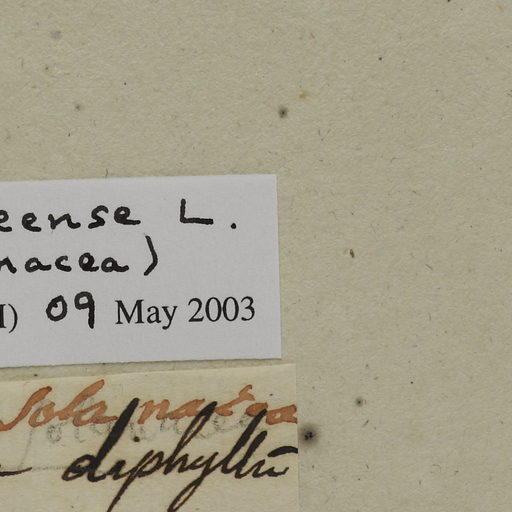 eense L.
nacea)
I) 09 May 2003
Solanacea
diphyllū